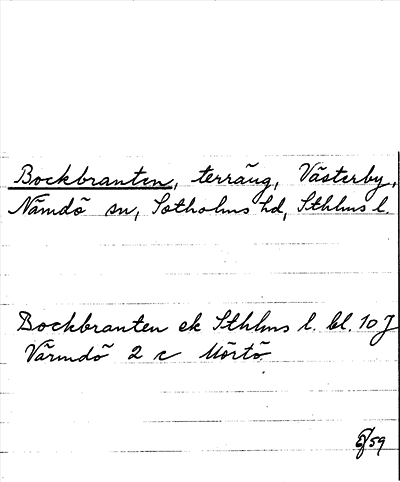 Bockbranten, terräng, Västerby,
Nämdö sn, Sotholms hd, Sthlms l.
Bockbranten ek Sthlms l. bl. 10 J
Värmdö 2 c Mörtö
6/59